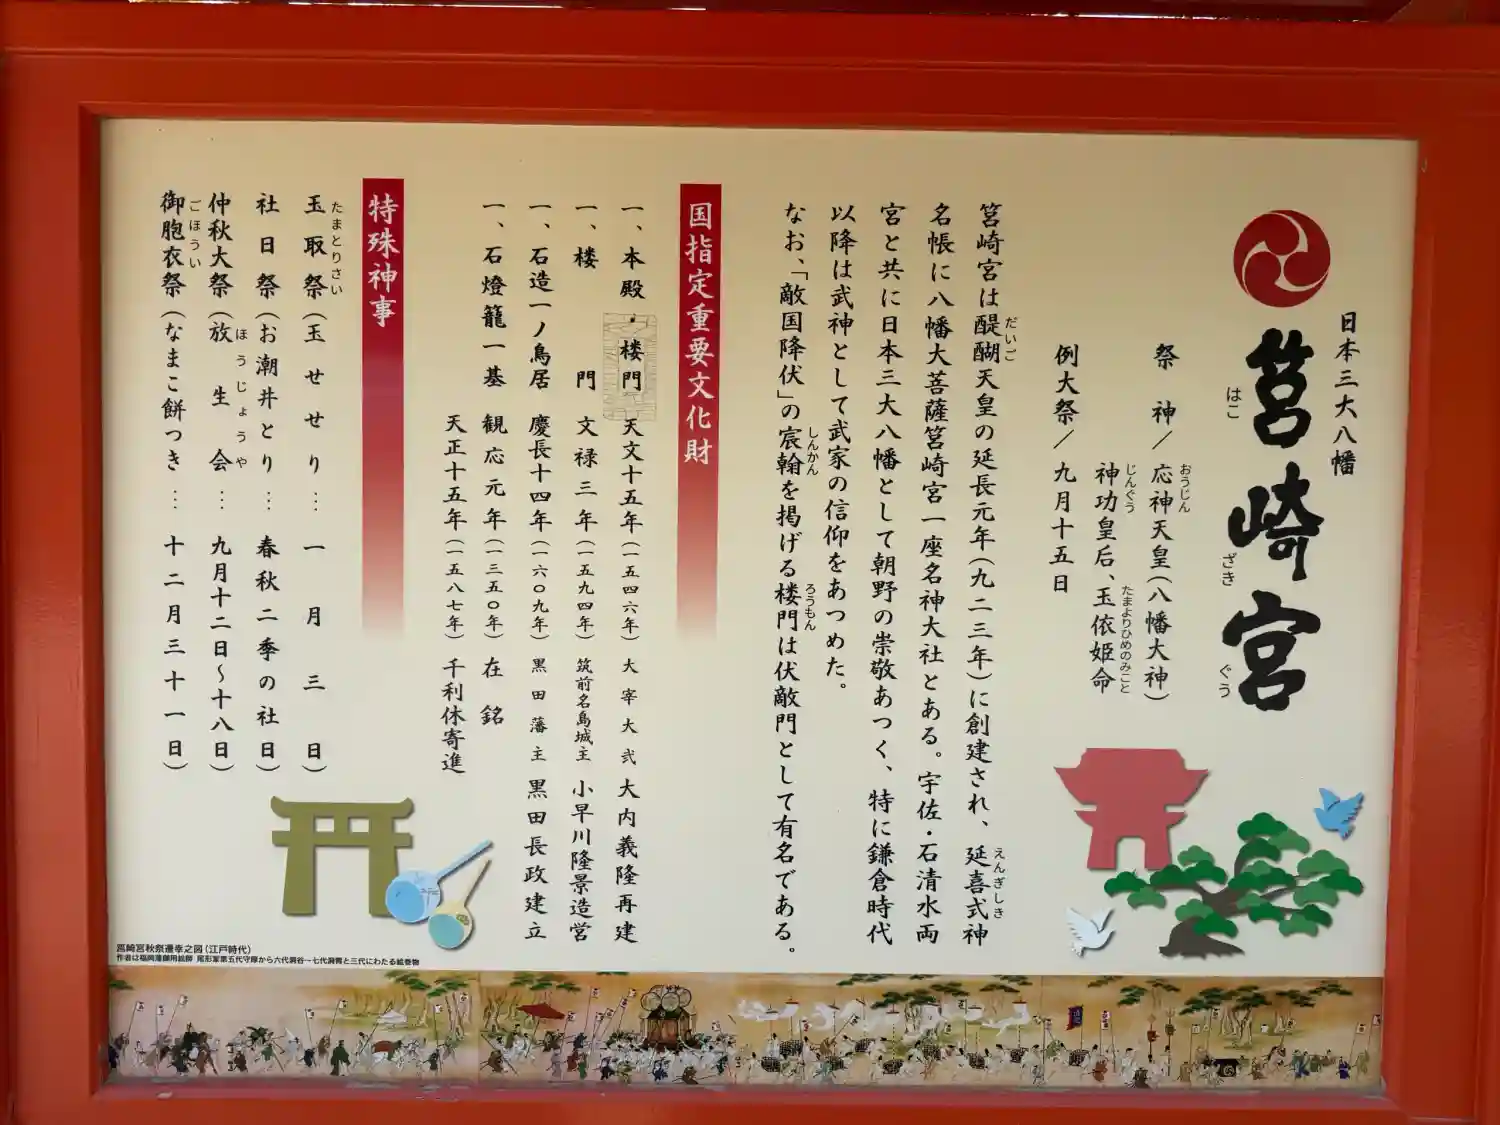 日本三大八幡
筥崎宮
はこ ざき ぐう
祭神／応神天皇（八幡大神）
おうじん
神功皇后、玉依姫命
じんぐう たまよりひめのみこと
例大祭／九月十五日
筥崎宮は醍醐天皇の延長元年（九二三年）に創建され、延喜式神
だいご えんぎしき
名帳に八幡大菩薩筥崎宮一座名神大社とある。宇佐・石清水両
宮と共に日本三大八幡として朝野の崇敬あつく、特に鎌倉時代
以降は武神として武家の信仰をあつめた。
なお、「敵国降伏」の宸翰を掲げる楼門は伏敵門として有名である。
しんかん ろうもん
国指定重要文化財
一、本殿・楼門 天文十五年（一五四六年）太宰大弐 大内義隆再建
一、楼門 文禄三年（一五九四年）筑前名島城主 小早川隆景造営
一、石造一ノ鳥居 慶長十四年（一六〇九年）黒田藩主 黒田長政建立
一、石燈籠一基 観応元年（一三五〇年）在銘
天正十五年（一五八七年）千利休寄進
特殊神事
玉取祭（玉せせり…一月三日）
たまとりさい
社日祭（お潮井とり…春秋二季の社日）
仲秋大祭（放生会…九月十二日～十八日）
ほうじょうや
御胞衣祭（なまこ餅つき…十二月三十一日）
ごほうい
筥崎宮秋祭遷幸之図（江戸時代）